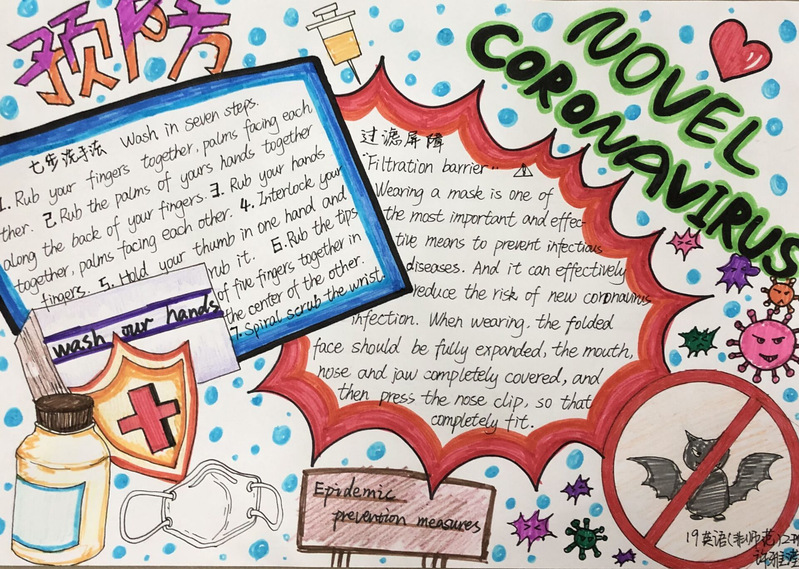 预防
NOVEL
CORONAVIRUS
七步洗手法 Wash in seven steps.
1. Rub your fingers together, palms facing each
ther. 2. Rub the palms of yours hands together
along the back of your fingers. 3. Rub your hands
together, palms facing each other. 4. Interlock your
fingers. 5. Hold your thumb in one hand and
rub it. 6. Rub the tips
of five fingers together in
the center of the other.
7. Spiral scrub the wrist.
wash our hands
过滤屏障
"Filtration barrier"
Wearing a mask is one of
the most important and effec-
tive means to prevent infectious
diseases. And it can effectively
reduce the risk of new coronavirus
infection. When wearing, the folded
face should be fully expanded, the mouth,
nose and jaw completely covered, and
then press the nose clip, so that
completely fit.
Epidemic
prevention measures
19英语(非师范)2班